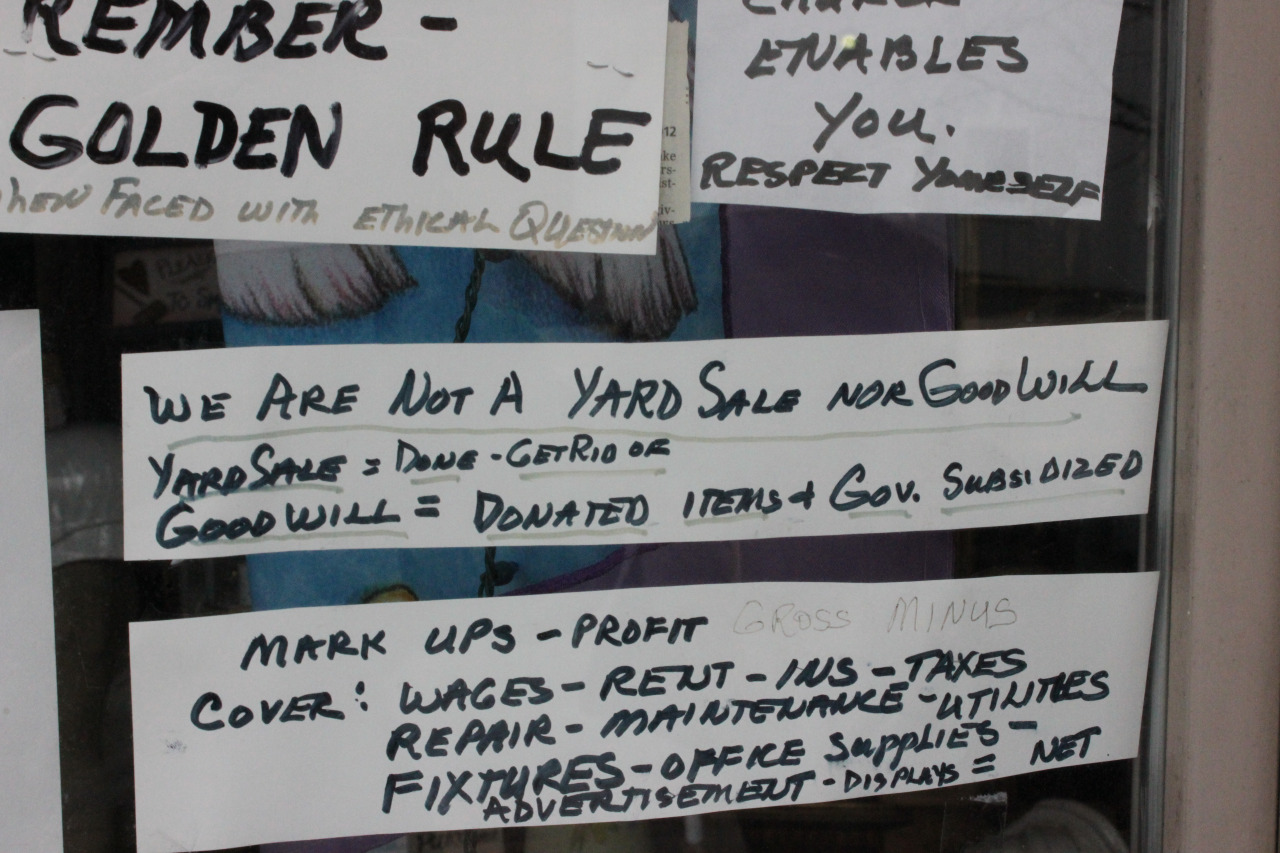 REMBER -
GOLDEN RULE
WHEN FACED WITH ETHICAL QUESTION
ENABLES
YOU.
RESPECT YOURSELF
12
ke
rs-
st-
iv-
WE ARE NOT A YARD SALE NOR GOODWILL
YARD SALE = DONE - GET RID OF
GOODWILL = DONATED ITEMS & GOV. SUBSIDIZED
MARK UPS - PROFIT GROSS MINUS
COVER: WAGES - RENT - INS - TAXES
REPAIR - MAINTENANCE - UTILITIES
FIXTURES - OFFICE SUPPLIES -
ADVERTISEMENT - DISPLAYS = NET